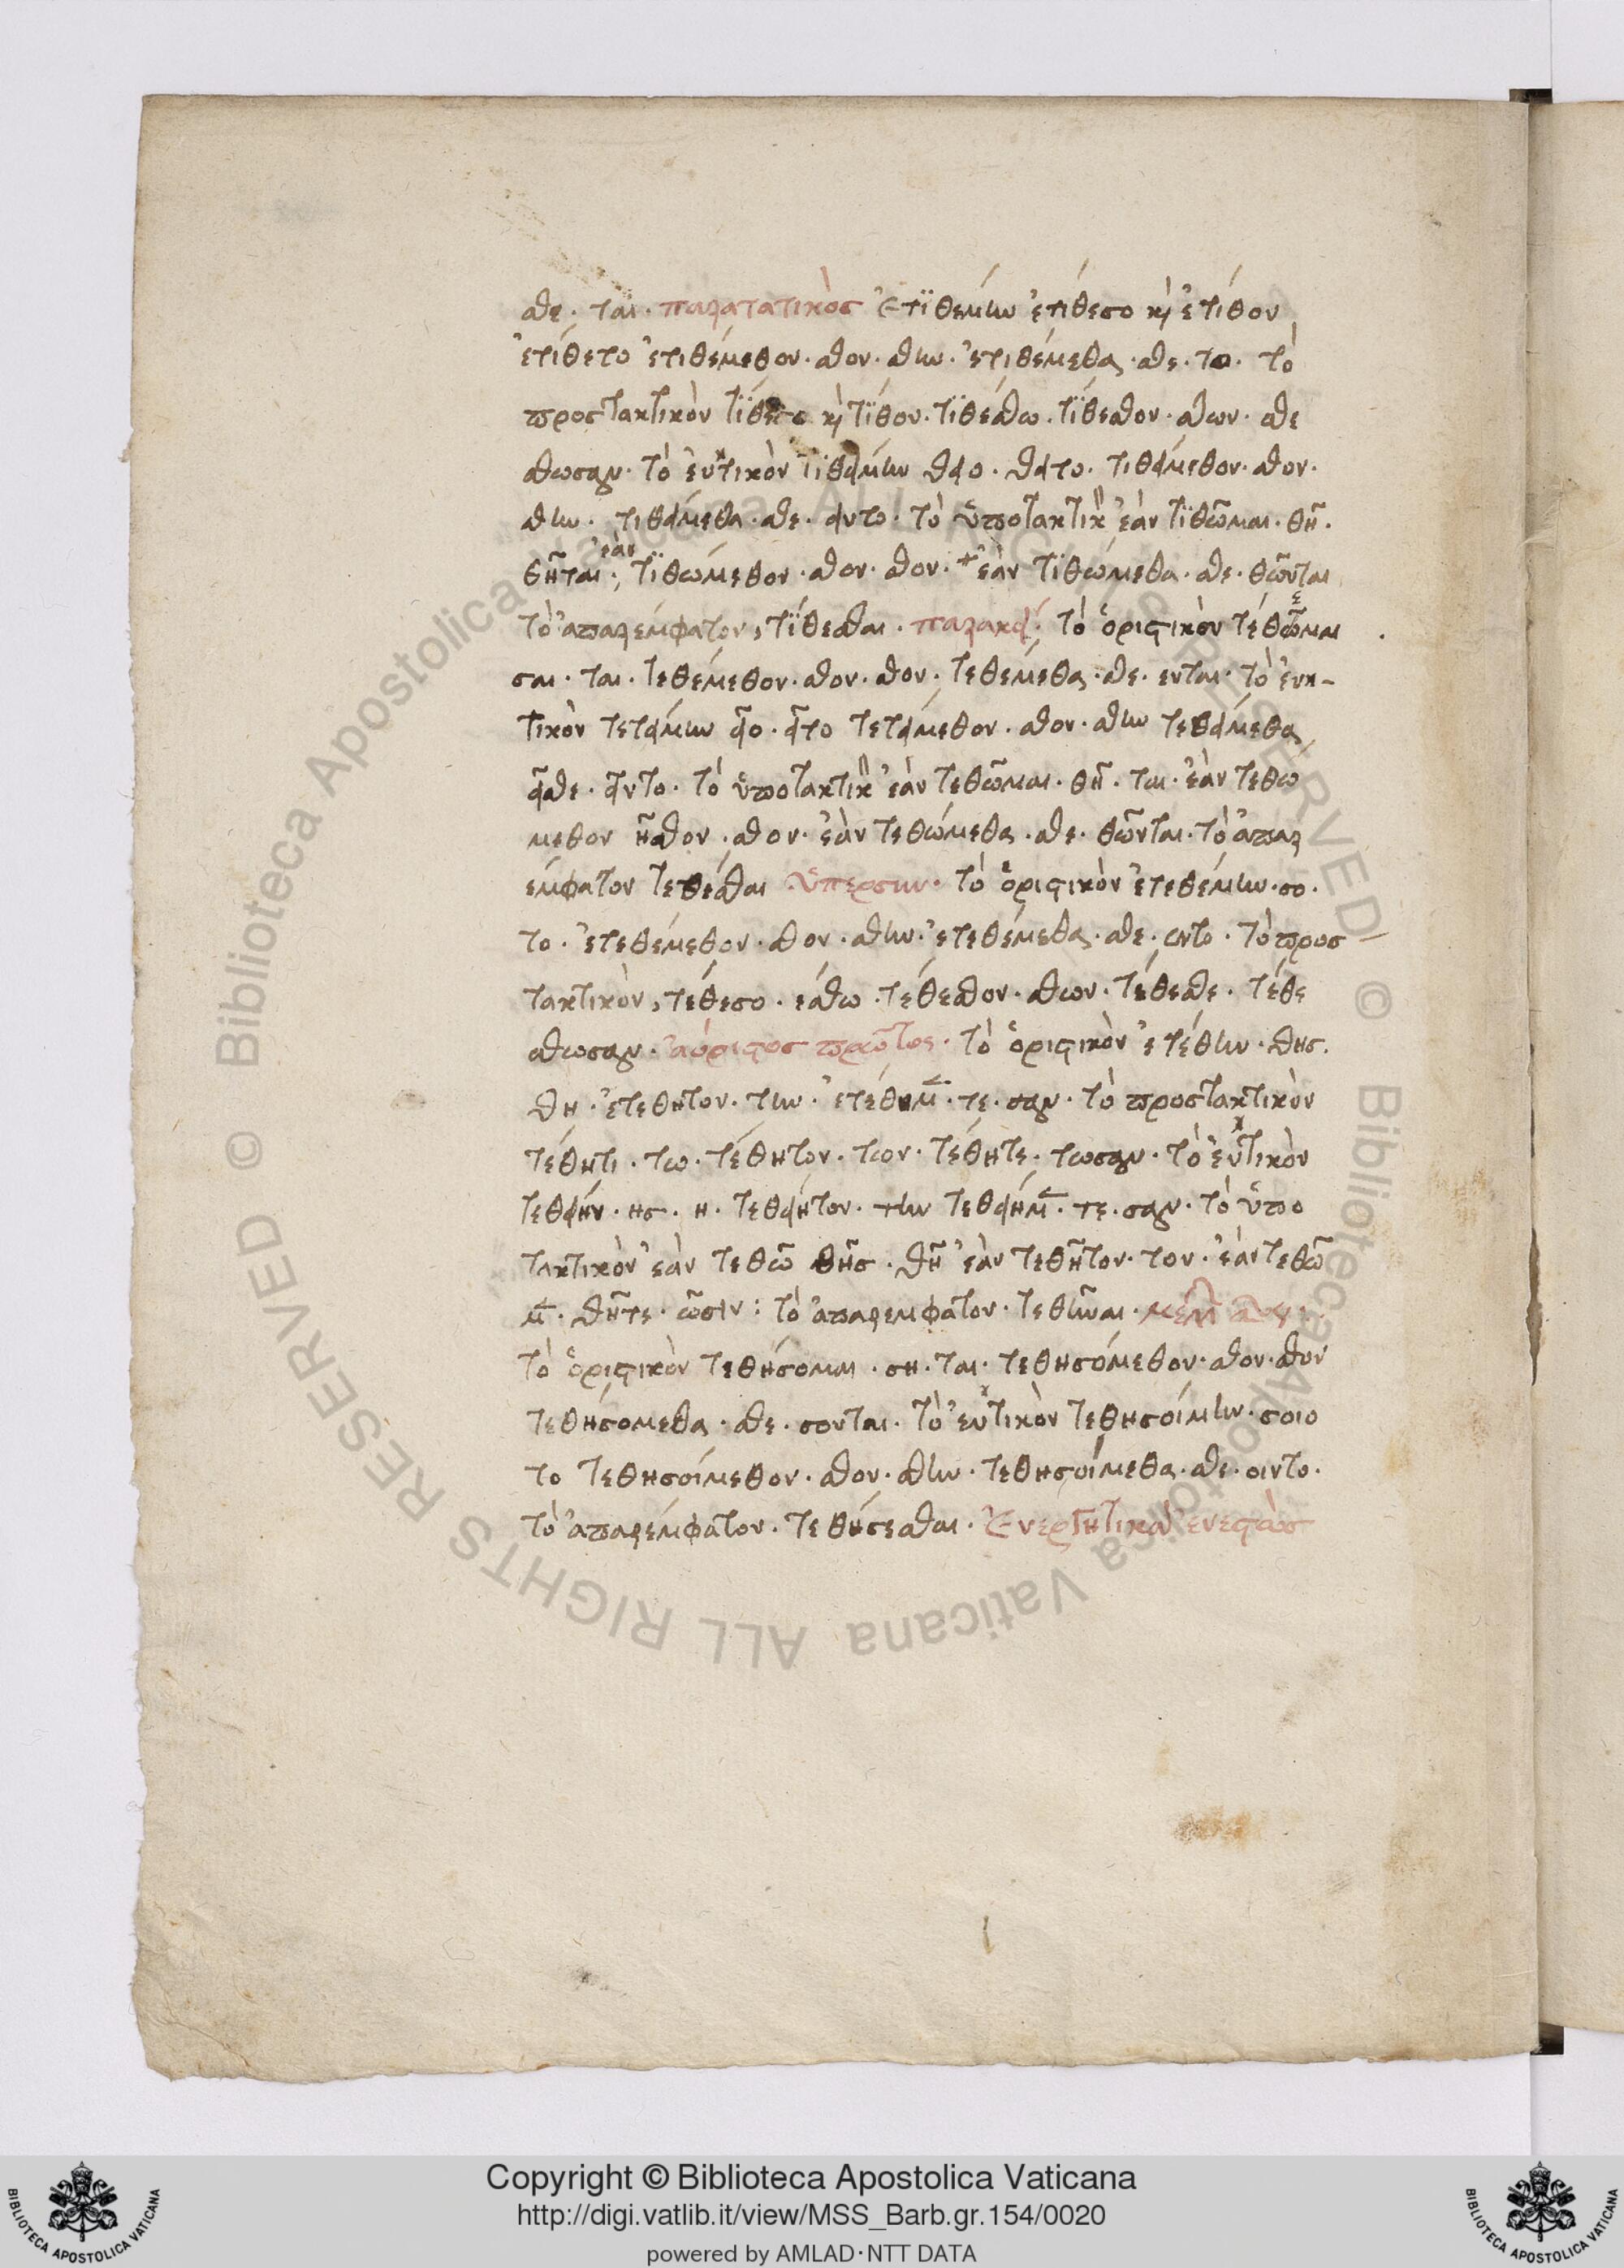 σθε· ται· παρατατικὸσ Ἐτϊθέμην ἐτίθεσο κὶ ἐτίθου
ἐτίθετο ἐτιθέμεθον· σθον· σθην· ἐτιθέμεθα· σθε· το· τὸ
προστακτικὸν τϊθεσο κὶ τϊθου· τϊθέσθω· τϊθεσθον· σθων· σθε
σθωσαν· τὸ ἐυκτικὸν τϊθοίμην θοῖο· θοῖτο· τιθοίμεθον· σθον·
σθην· τιθοίμεθα· σθε· οιντο· τὸ ὑποτακτικ ἐὰν τϊθῶμαι· θῆ·
θῆται· ἐὰν τϊθώμεθον· σθον· σθον· + ἐὰν τϊθώμεθα· σθε· θῶνται
τὸ ἀπαρέμφατον, τϊθεσθαι· παρακεί· τὸ ὁριστικὸν τέθῶμαι
σαι· ται· τεθέμεθον· σθον· σθον· τεθέμεθα· σθε· ενται· τὸ ἐυκ-
τικὸν τετοίμην οῖο· οῖτο τετοίμεθον· σθον· σθην τεθοίμεθα
οῖσθε· οῖντο· τὸ ὑποτακτικ ἐὰν τεθῶμαι· θῆ· ται· ἐὰν τεθω
μεθον ῆσθον· σθον· ἐὰν τεθώμεθα· σθε· θῶνται· τὸ ἀπαρ
έμφατον τεθέσθαι ὑπερσυν· τὸ ὁριστικὸν ἐτεθέμην· σο·
το· ἐτεθέμεθον· σθον· σθην· ἐτεθέμεθα· σθε· εντο· τὸ προσ
τακτικὸν, τέθεσο· έσθω· τέθεσθον· σθων· τέθεσθε· τέθε
σθωσαν· ἀόριστοσ πρῶτος· τὸ ὁριστικὸν ἐτέθην· θησ·
θη· ἐτεθητον· την· ἐτέθημ· τε· σαν· τὸ προστακτικὸν
τέθητι· τω· τέθητον· των· τέθητε· τωσαν· τὸ ἐυκτικὸν
τεθοίην· ησ· η· τεθοίητον· την τεθοίημ· τε· σαν· τὸ ὑπο
τακτικὸν ἐὰν τεθῶ θῆσ· θῆ ἐὰν τεθῆτον· τον· ἐὰν τεθῶ
μ· θῆτε· ῶσιν: τὸ ἀπαρεμφατον· τεθῆναι·
τὸ ὁριστικὸν τεθήσομαι· ση· ται· τεθησόμεθον· σθον· σθον
τεθησομεθα· σθε· σονται· τὸ ἐυκτικὸν τεθησοίμην· σοιο
το τεθησοίμεθον· σθον· σθην· τεθησοίμεθα· σθε· οιντο·
τὸ ἀπαρέμφατον· τεθήσεσθαι· Ἐνεργητικὰ ἐνεστὼσ
© Biblioteca Apostolica Vaticana ALL RIGHTS RESERVED © Biblioteca Apostolica Vaticana ALL RIGHTS RESERVED
Copyright © Biblioteca Apostolica Vaticana
http://digi.vatlib.it/view/MSS_Barb.gr.154/0020
powered by AMLAD·NTT DATA
BIBLIOTECA APOSTOLICA VATICANA
BIBLIOTECA APOSTOLICA VATICANA